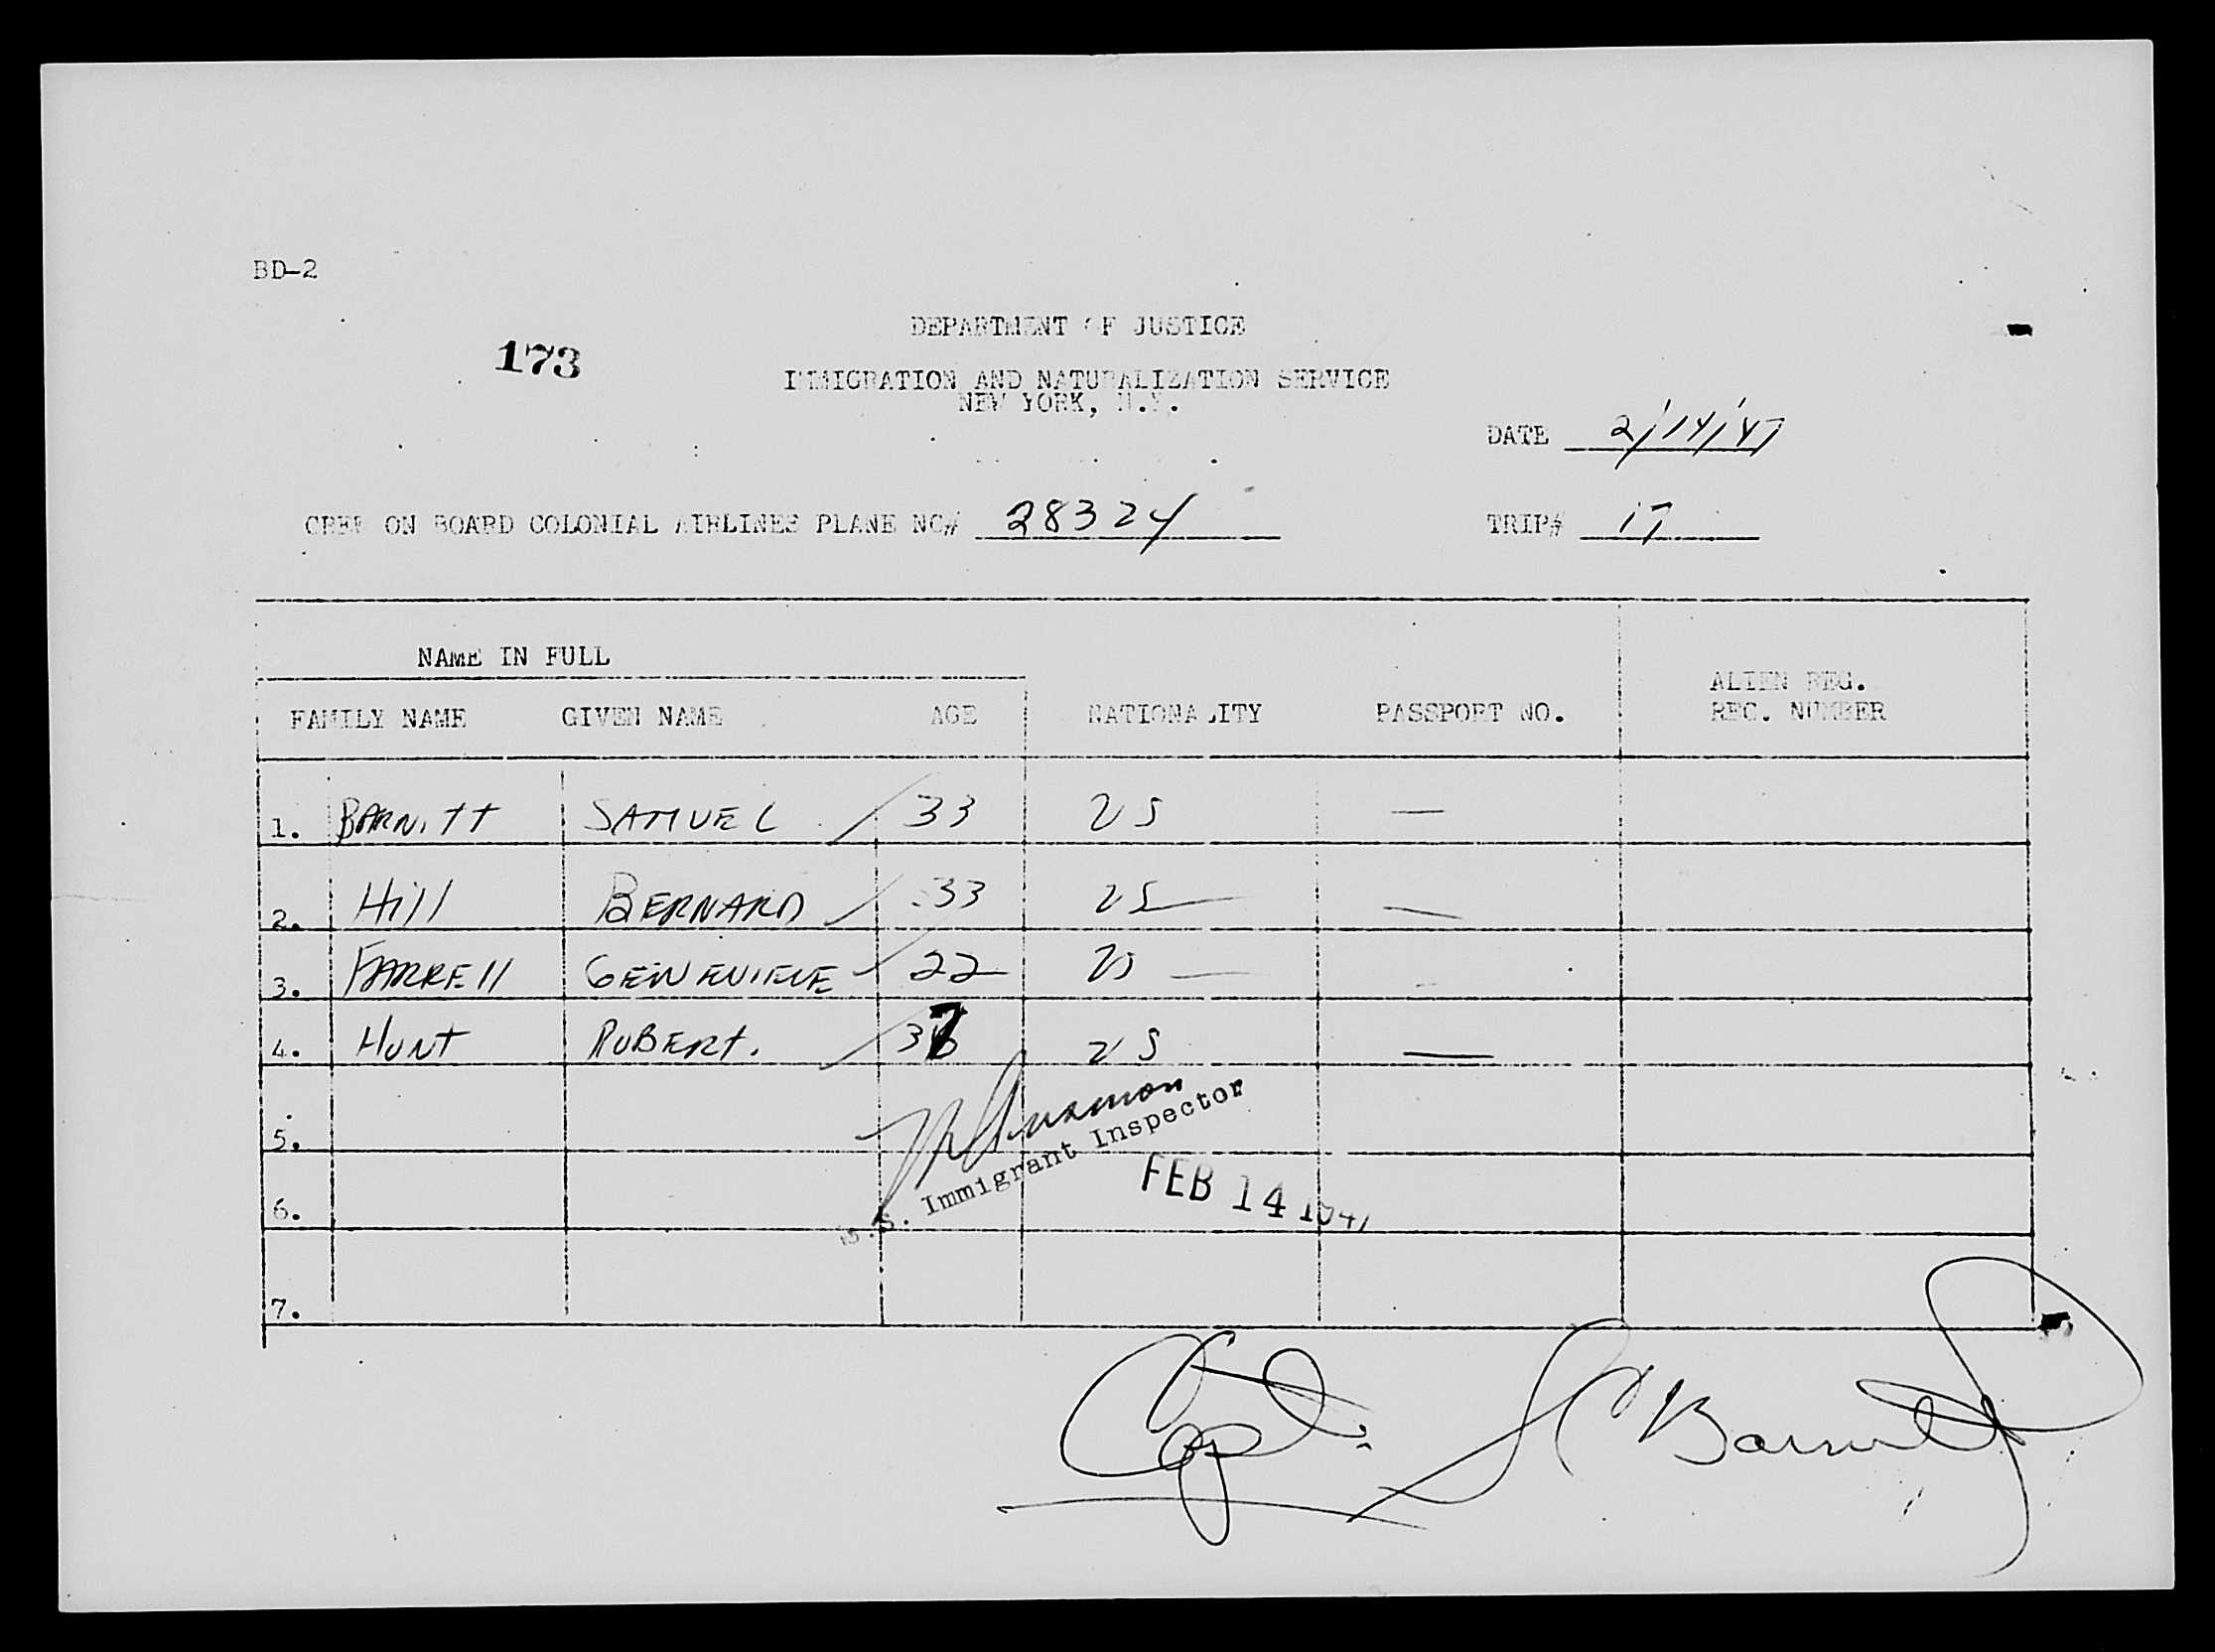 BD-2
173
DEPARTMENT OF JUSTICE
IMMIGRATION AND NATURALIZATION SERVICE
NEW YORK, N.Y.
DATE 2/14/47
CREW ON BOARD COLONIAL AIRLINES PLANE NO# 28324 TRIP# 17
NAME IN FULL
FAMILY NAME GIVEN NAME AGE NATIONALITY PASSPORT NO. ALIEN REG. REC. NUMBER
1. BARNITT SAMUEL 33 US —
2. Hill BERNARD 33 US —
3. FARRELL GENEVIEVE 22 US —
4. HUNT ROBERT. 37 US —
5.
U.S. Immigrant Inspector
FEB 14 1947
6.
7.
Capt. S C Barnitt